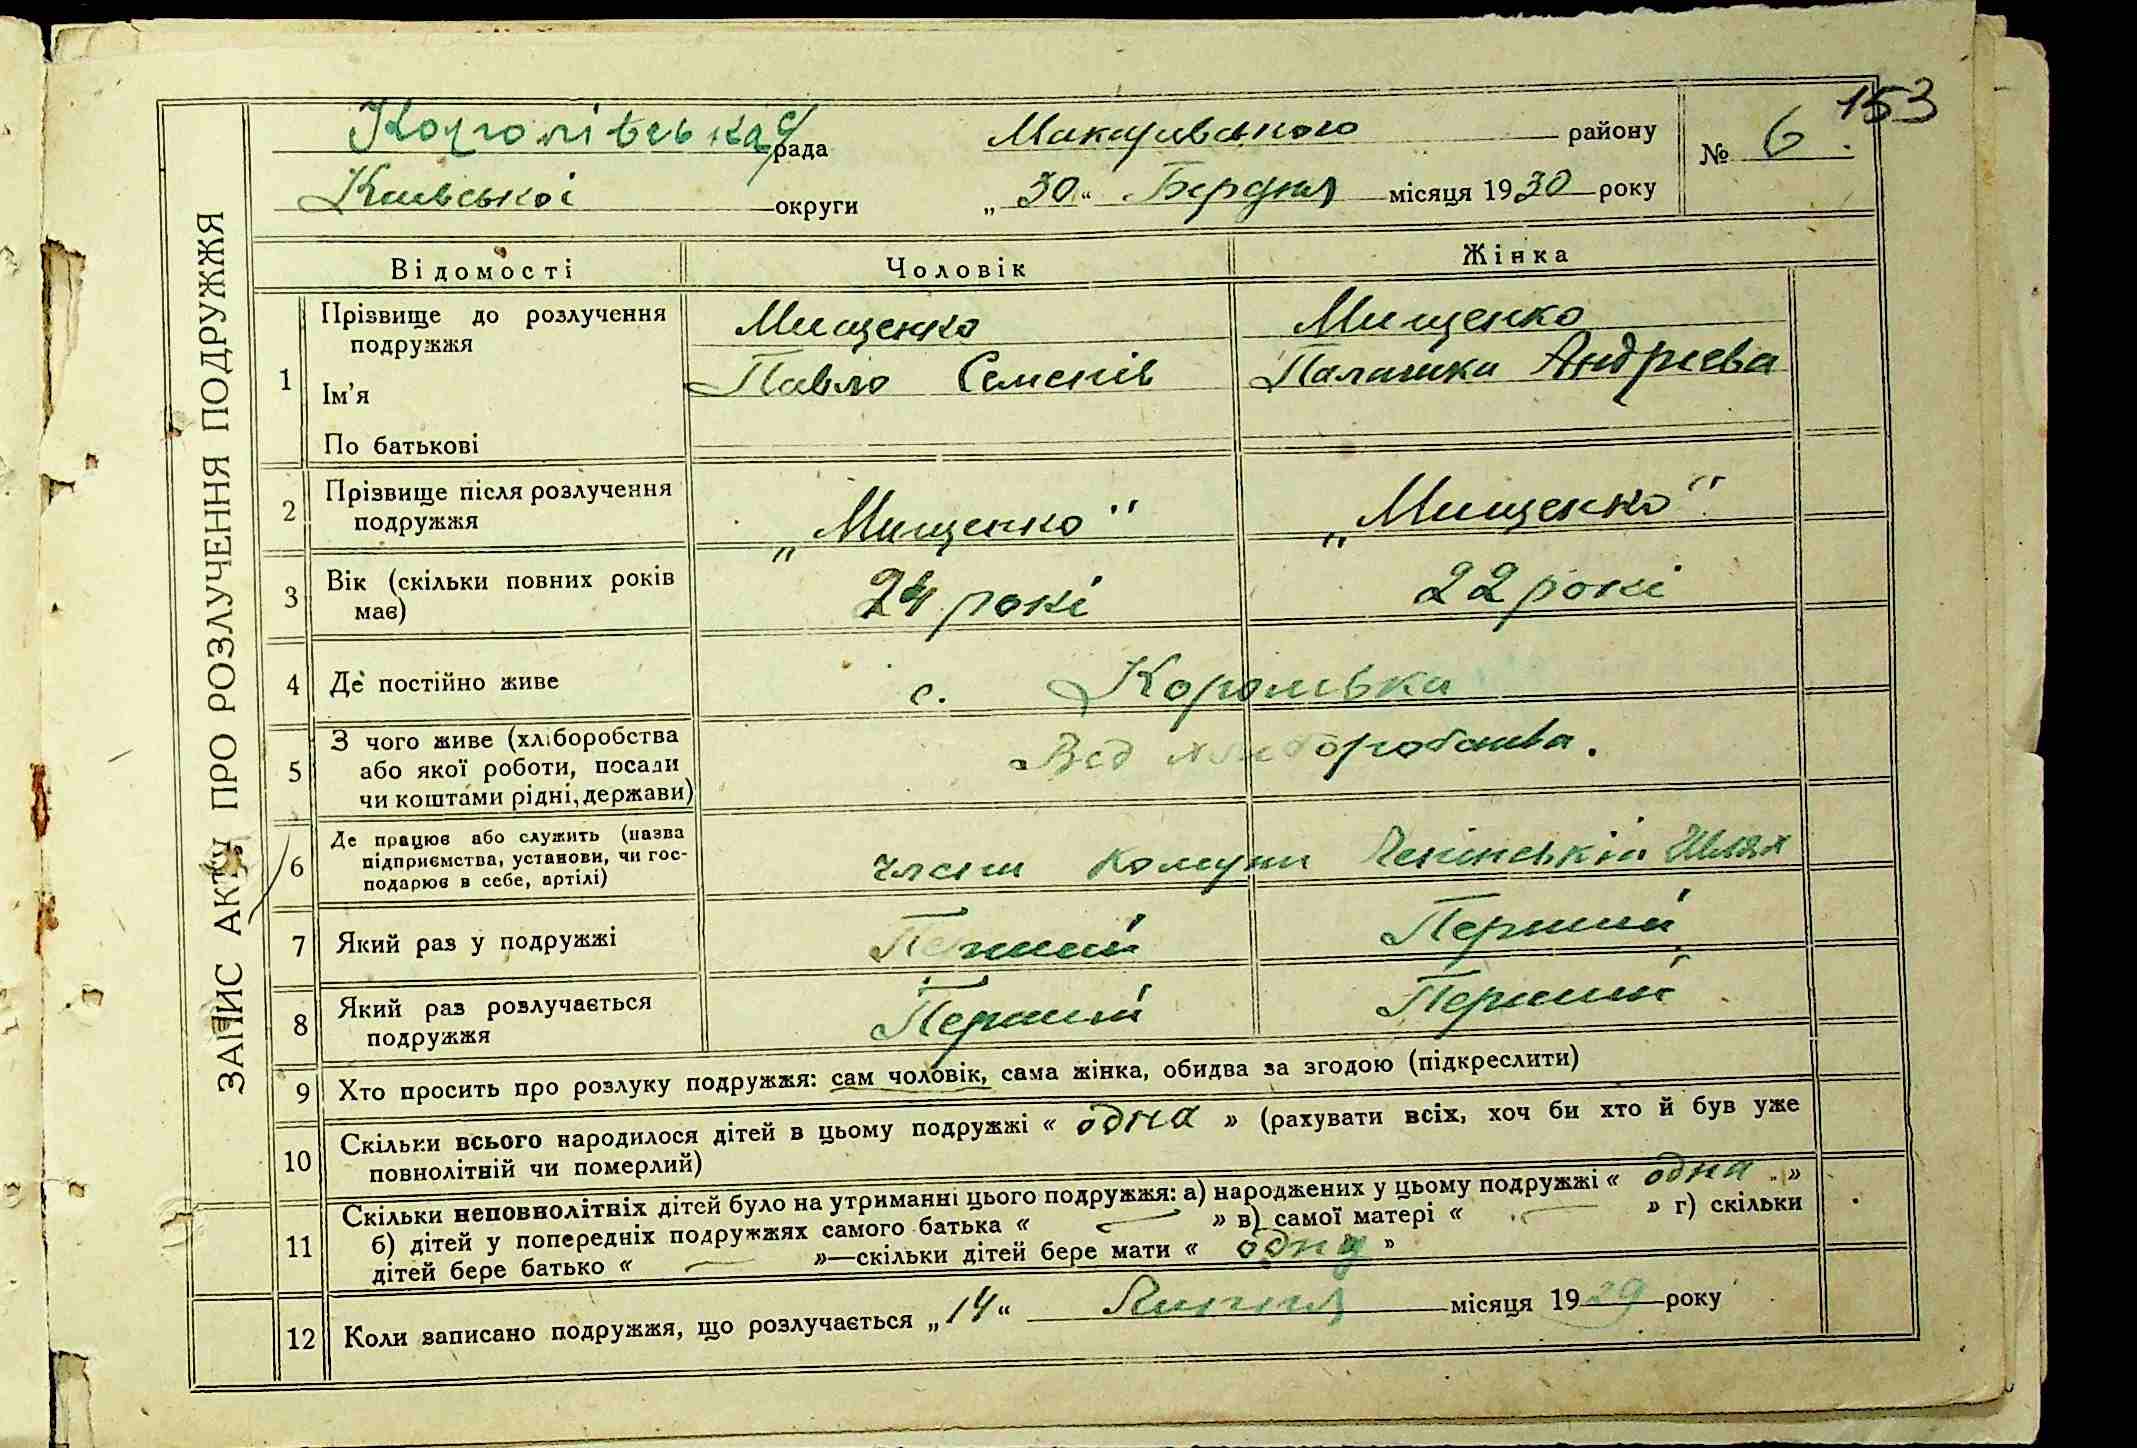 153
Королівська с/рада Макарівського району № 6.
Київської округи „30“ Бердня місяця 1930 року
ЗАПИС АКТУ ПРО РОЗЛУЧЕННЯ ПОДРУЖЖЯ
Відомості Чоловік Жінка
1 Прізвище до розлучення Мищенко Мищенко
подружжя
Ім’я Павло Семенів Палашка Андрієва
По батькові
2 Прізвище після розлучення „Мищенко" „Мищенко"
подружжя
3 Вік (скільки повних років 24 рокі 22 рокі
має)
4 Де постійно живе с. Королівка
5 З чого живе (хліборобства Від хліборобства.
або якої роботи, посади
чи коштами рідні, держави)
6 Де працює або служить (назва члени Комуни Ленінській Шлях
підприємства, установи, чи гос-
подарює в себе, артілі)
7 Який раз у подружжі Перший Перший
8 Який раз розлучається Перший Перший
подружжя
9 Хто просить про розлуку подружжя: сам чоловік, сама жінка, обидва за згодою (підкреслити)
10 Скільки всього народилося дітей в цьому подружжі « одна » (рахувати всіх, хоч би хто й був уже
повнолітній чи померлий)
11 Скільки неповнолітніх дітей було на утриманні цього подружжя: а) народжених у цьому подружжі « одна »
б) дітей у попередніх подружжях самого батька « — » в) самої матері « — » г) скільки
дітей бере батько « — »—скільки дітей бере мати « одну »
12 Коли записано подружжя, що розлучається „14“ Липня місяця 1929 року